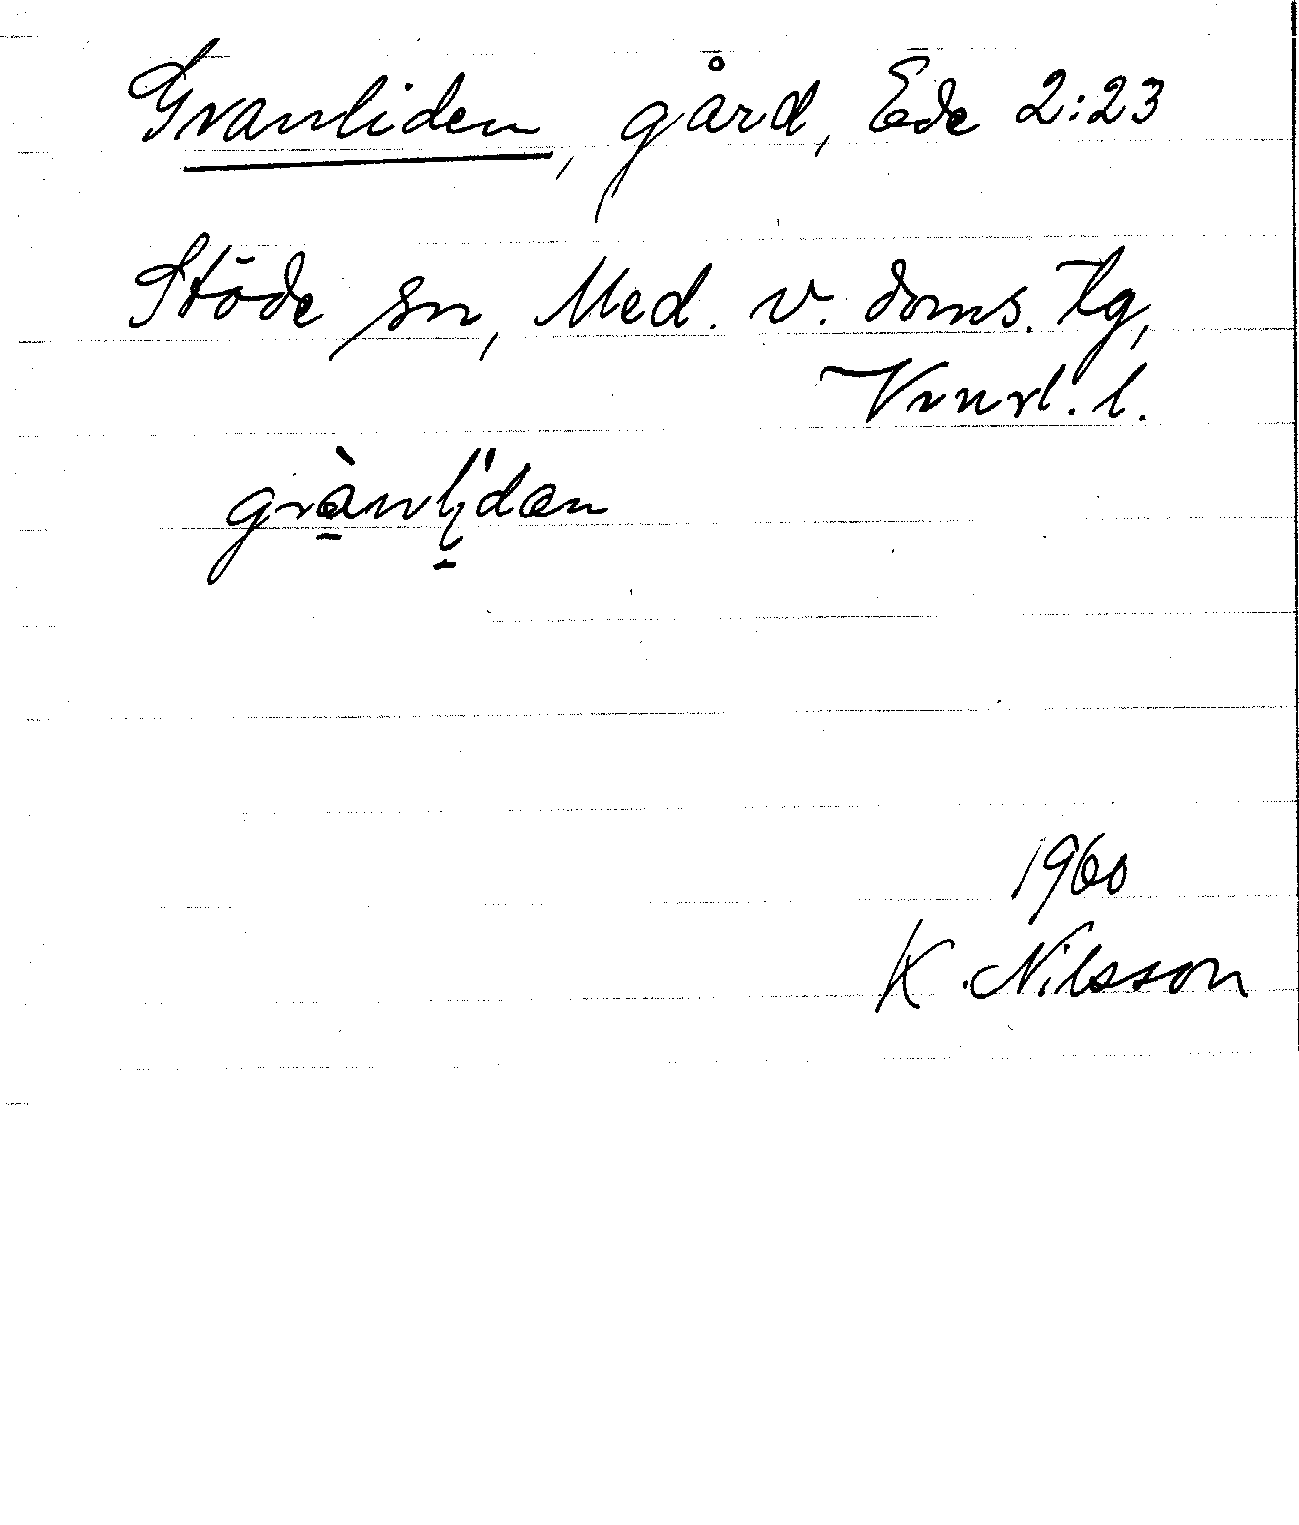 Granliden, gård, Ede 2:23
Stöde sn, Med. v. doms. tg,
Vrnrl. l.
1960
K. Nilsson